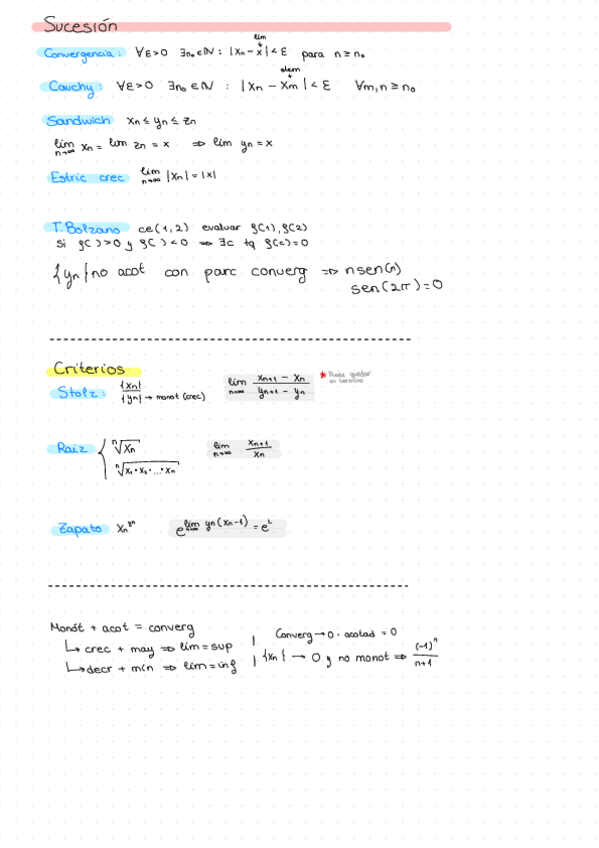 Sucesión
lim
Convergencia: ∀ε>0 ∃n₀∈ℕ : |xₙ - x| < ε para n ≥ n₀
elem
Cauchy: ∀ε>0 ∃n₀∈ℕ : |xₙ - xₘ| < ε ∀m,n ≥ n₀
Sandwich xₙ ≤ yₙ ≤ zₙ
lim n→∞ xₙ = lim zₙ = x ⇒ lim yₙ = x
Estric crec lim n→∞ |xₙ| = |x|
T. Bolzano c∈(1,2) evaluar f(1), f(2)
Si f( ) > 0 y f( ) < 0 ⇒ ∃c tq f(c) = 0
{yₙ} no acot con parc converg ⇒ n sen(n)
sen(2π) = 0
Criterios
Stolz: {xₙ} {yₙ} → monot (crec) lim n→∞ (xₙ₊₁ - xₙ)/(yₙ₊₁ - yₙ) * Puede quedar
Raiz { ⁿ√xₙ lim n→∞ xₙ₊₁/xₙ
ⁿ√(x₁·x₂·...·xₙ)
Zapato xₙ^yₙ e^(lim n→∞ yₙ(xₙ-1)) = e^L
Monót + acot = converg
↳ crec + may ⇒ lim = sup
↳ decr + min ⇒ lim = inf
Converg→0 · acotad = 0
{xₙ} → 0 y no monot ⇒ (-1)ⁿ/(n+1)